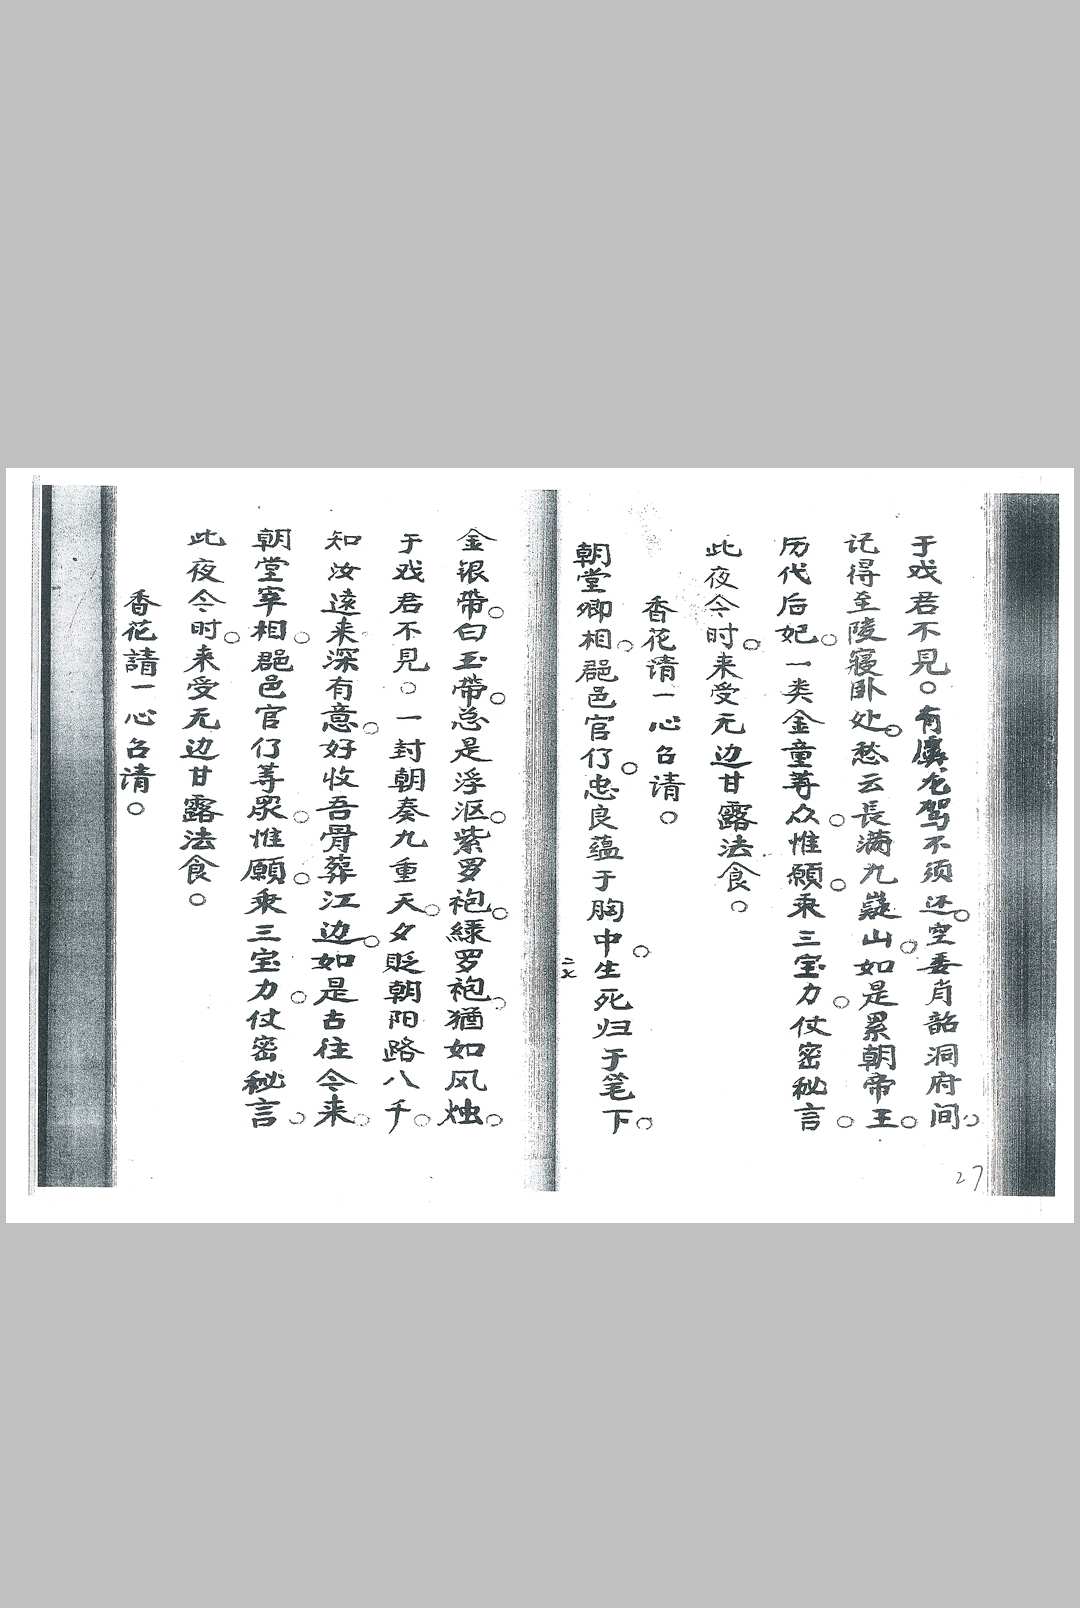 于戏君不見○有虞龙驾不须还○空委肖韶洞府间○
记得至陵寝卧处○愁云長满九嶷山○如是累朝帝王○
历代后妃○一类金童等众○惟願○乘三宝力○仗密秘言○
此夜今时○来受无边甘露法食○
香花请一心召请○
朝堂卿相○郡邑官仃○忠良蕴于胸中○生死归于笔下○
二七
金银带○白玉带○总是浮沤○紫罗袍○緑罗袍○猶如风烛○
于戏君不見○一封朝奏九重天○夕贬朝阳路八千○
知汝遠来深有意○好收吾骨葬江边○如是古往今来○
朝堂宰相○郡邑官仃等眾○惟願○乘三宝力○仗密秘言○
此夜今时○来受无边甘露法食○
香花請一心召请○
27